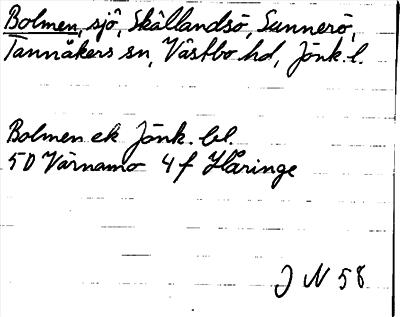 Bolmen, sjö, Skållandsö, Sunnerö,
Tannåkers sn, Västbo hd, Jönk. l.
Bolmen ek Jönk. bl.
5D Värnamo 4f Håringe
J N 58